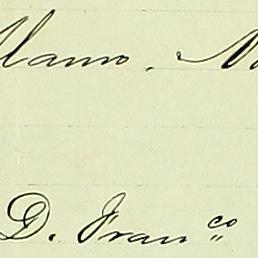 Alamo. N
D. Franco